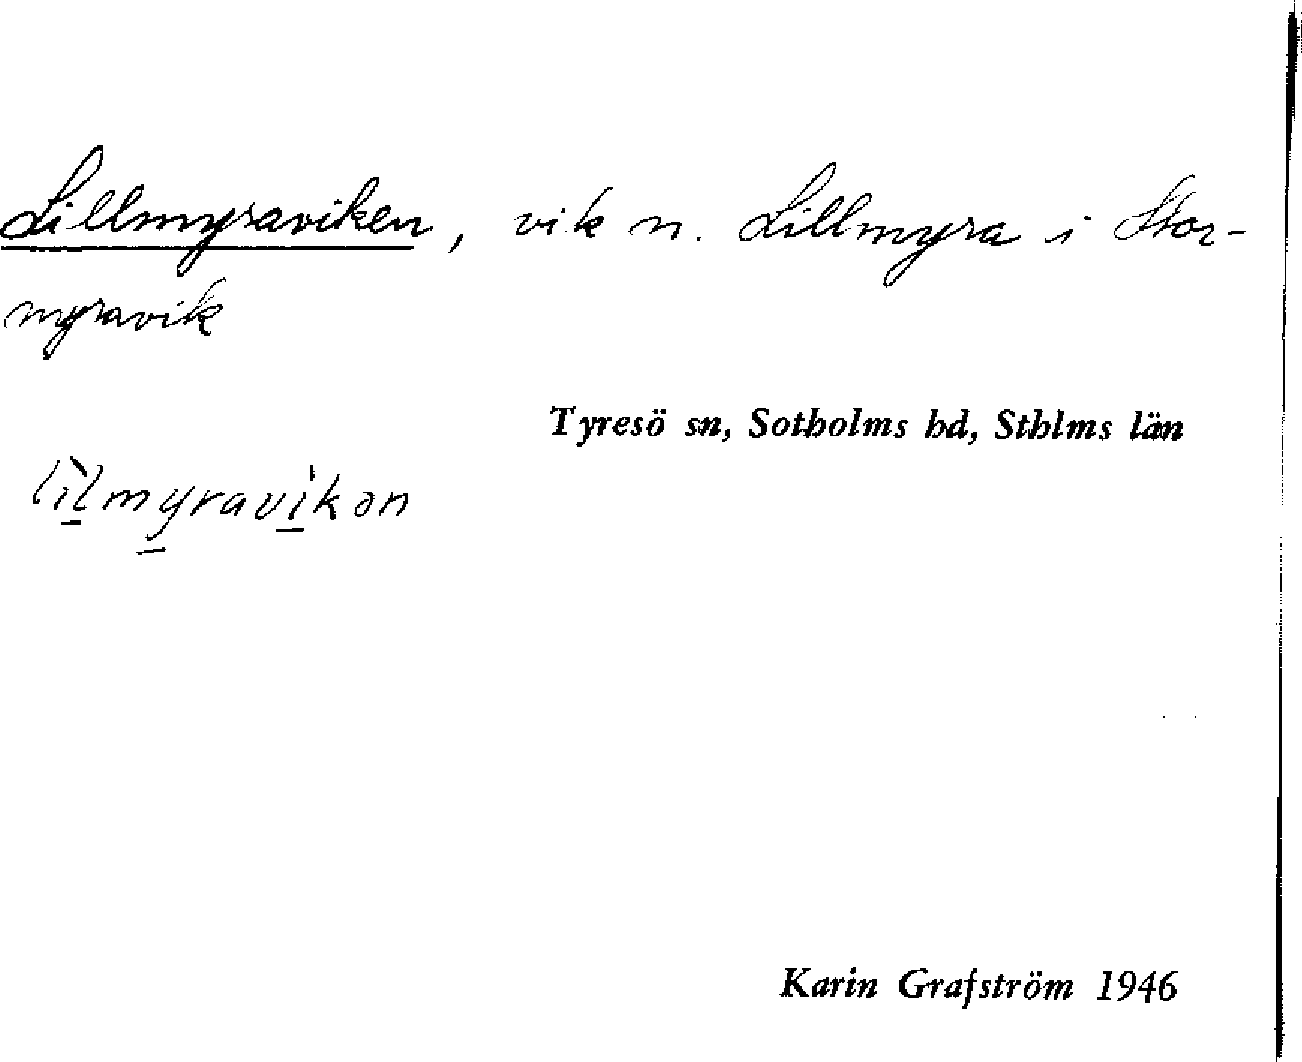 Lillmyraviken, vik n. Lillmyra i Stor-
myravik
Tyresö sn, Sotholms hd, Sthlms län
lìlmyravìkən
Karin Grafström 1946